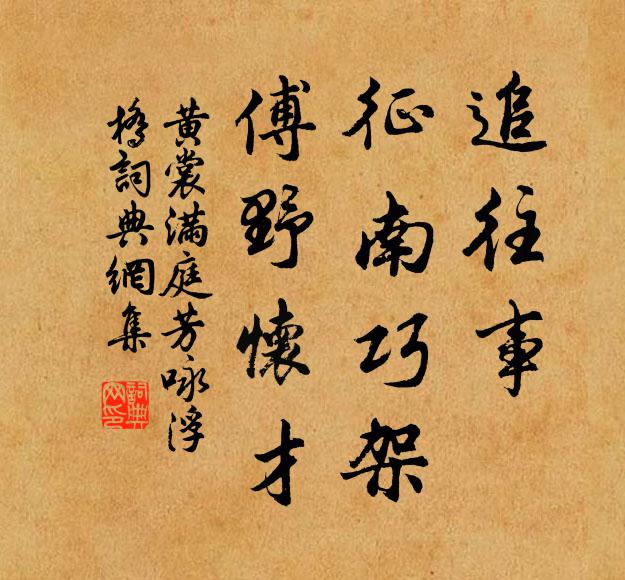 追往事
征南巧架
傅野懷才
黃裳滿庭芳咏浮
橋詞典網集
詞典網印